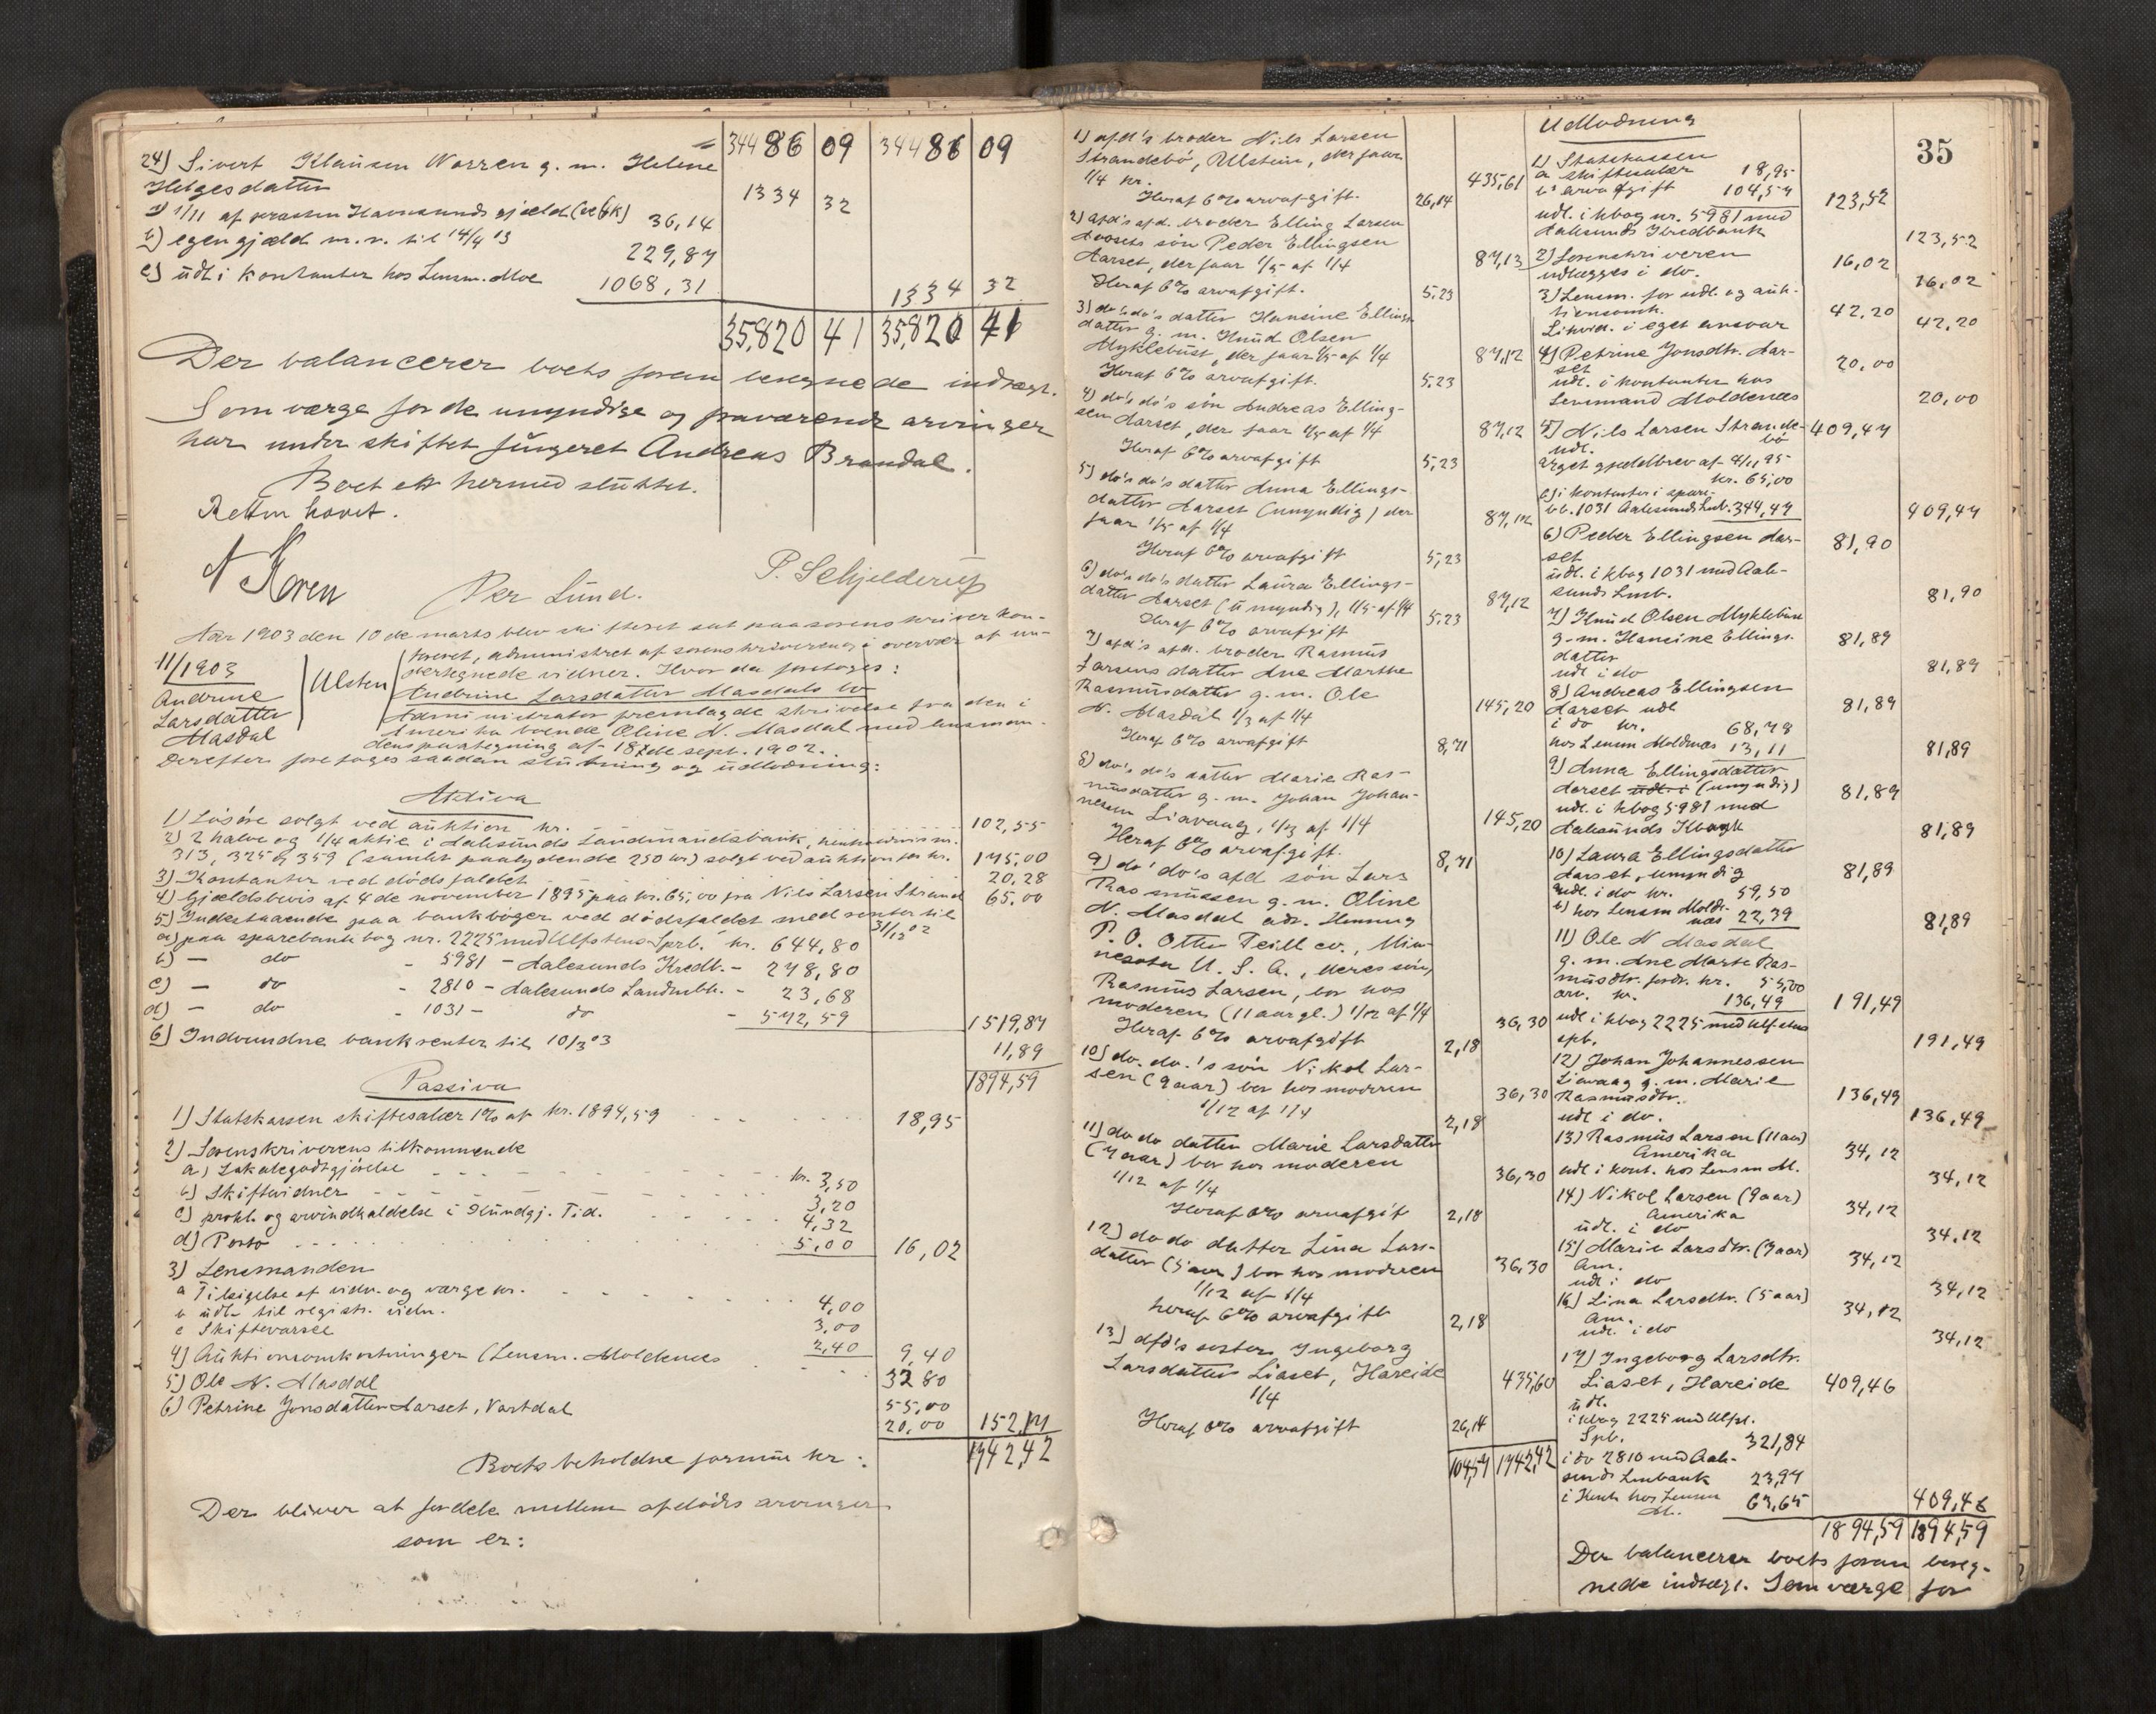 34486 09 34486 09
24) Sivert Klausen Warren g. m. Helene
Helgesdatter
1334 32
a) 1/11 af præsten Havnsunds gjæld 36,14
b) egen gjæld m. r. til 14/4 13
229,87
c) udl i kontanter hos Lensm. Moe
1068,31
1334 32
35,820 41 35,820 41
Der balancerer boets foran beregnede indtægt.
Som værge for de umyndige og fraværende arvinger
har under skiftet fungeret Andreas Brandal.
Boet er hermed sluttet.
Retten hævet.
N Koren
Per Lund.
P. Schjelderup
Aar 1903 den 10de marts blev skifteret sat paa sorenskriverkon-
toret, administret af sorenskriveren, i overvær af un-
dertegnede vidner. Hvor da foretoges:
11/1903
Andrine
Larsdatter
Masdal
Ulsten
Andrine Larsdatter Masdals bo
Administrator fremlagde skrivelse fra den i
Amerika boende Oline N. Masdal med lensman-
dens paategning af 18de sept. 1902.
Derefter foretoges saadan slutning og udlodning:
Aktiva
1) Løsøre solgt ved auktion kr. 102,55
2) 2 halve og 1/4 aktie i Aalesunds Landmandsbank, henholdsvis nr.
313, 325 og 359 (samlet paalydende 250 kr) solgt ved auktion for kr. 175,00
3) Kontanter ved dødsfaldet 20,28
4) Gjældsbevis af 4de november 1895 paa kr. 65,00 fra Nils Larsen Strand 65,00
5) Indestaaende paa bankbøger ved dødsfaldet med renter til
31/12 02
a) paa sparebankbog nr. 2225 med Ulfstens Sprb. kr. 644,80
b) — do - 5981 - Aalesunds Kredb. - 278,80
c) — do - 2810 - Aalesunds Landmbk. - 23,68
d) — do - 1031 - do - 572,59
1519,87
6) Indvundne bankrenter til 10/3 03
11,89
1894,59
Passiva
1) Statskassen skiftesalær 1% af kr. 1894,59 18,95
2) Sorenskriverens tilkommende
a) Lokalegodtgjørelse kr. 3,50
b) Skiftevidner 3,20
c) prokl. og arveindkaldelse i Kundgj. Tid. 4,32
d) Porto 5,00 16,02
3) Lensmanden
a Tilsigelse af vidn. og værge kr. 4,00
b udl. til registr. vidn. 3,00
c Skiftevarsel 2,40
9,40
4) Auktionsomkostninger (Lensm. Moldenæs 32 80
5) Ole N. Masdal 55,00
6) Petrine Jonsdatter Aarset, Vartdal 20,00 152,17
Boets beholdne formue kr: 1742,42
Der bliver at fordele mellem afdødes arvinger
som er:
35
1) afd's broder Nils Larsen
Strandebø, Ulstein, der faar
1/4 kr. 435,61
Heraf 6% arvafgift. 26,14
2) afd's afd. broder Elling Larsen
Aarsets søn Peder Ellingsen
Aarset, der faar 1/5 af 1/4 87,13
Heraf 6% arvafgift. 5,23
3) do's do's datter Hansine Ellings-
datter g. m. Knud Olsen
Myklebust, der faar 1/5 af 1/4 87,12
Heraf 6% arvafgift. 5,23
4) do's do's søn Andreas Elling-
sen Aarset, der faar 1/5 af 1/4 87,12
Heraf 6% arvafgift 5,23
5) do's do's datter Anna Ellings-
datter Aarset (umyndig) der
faar 1/5 af 1/4 87,12
Heraf 6% arvafgift 5,23
6) do's do's datter Laura Ellings-
datter Aarset (umyndig), 1/5 af 1/4 87,12
Heraf 6% arvafgift 5,23
7) afd's afd. broder Rasmus
Larsens datter Ane Marthe
Rasmusdatter g. m. Ole
N. Masdal 1/3 af 1/4 145,20
Heraf 6% arvafgift 8,71
8) do's do's datter Marie Ras-
musdatter g. m. Johan Johan-
nesen Liavaag, 1/3 af 1/4 145,20
Heraf 6% arvafgift. 8,71
9) do' do's afd søn Lars
Rasmussen g. m. Oline
N. Masdal adr. Henning
P. O. Otter Teill co., Min-
nesota U. S. A., deres søn,
Rasmus Larsen, bor hos
moderen (11 aar gl.) 1/12 af 1/4 36,30
Heraf 6% arvafgift 2,18
10) do. do.'s søn Nikol Lar-
sen (9 aar) bor hos moderen
1/12 af 1/4 36,30
2,18
11) do do datter Marie Larsdatter
(7 aar) bor hos moderen
1/12 af 1/4 36,30
Heraf 6% arvafgift 2,18
12) do do datter Lina Lars-
datter (5 aar) bor hos moderen 36,30
1/12 af 1/4
heraf 6% arvafgift 2,18
13) afd's søster Ingeborg
Larsdatter Liaset, Hareide
1/4 435,60
Heraf 6% arvafgift 26,14
104,57 1742,42
Udlodning
1) Statskassen
a skiftesalær 18,95
b arvafgift 104,57 123,52
udl. i kbog nr. 5981 med
Aalesunds Kredbank 123,52
2) Sorenskriveren 16,02
udlægges i do. 16,02
3) Lensm. for udl. og auk-
tionsomk. 42,20
Likvid. i eget ansvar 42,20
4) Petrine Jonsdtr. Aar-
set 20,00
udl. i kontanter hos
Lensmand Moldenæs 20,00
5) Nils Larsen Strande-
bø 409,47
udl.
eget gjældbrev af 4/11 95
kr. 65,00
b) i kontanter i spare-
bb. 1031 Aalesunds Lmb. 344,47 409,47
6) Peder Ellingsen Aar-
set 81,90
udl. i kbog 1031 med Aale-
sunds Lmb. 81,90
7) Knud Olsen Myklebust
g. m. Hansine Ellings-
datter 81,89
udl i do 81,89
8) Andreas Ellingsen
Aarset udl 81,89
i do kr. 68,78
hos Lensm Moldenæs 13,11 81,89
9) Anna Ellingsdatter
Aarset udl. i (umyndig) 81,89
udl. i kbog 5981 med
Aalesunds Kbank 81,89
10) Laura Ellingsdatter
Aarset, umyndig 81,89
udl. i do kr. 59,50
b) hos Lensm Molde-
næs 22,39 81,89
11) Ole N Masdal
g. m. Ane Marte Ras-
musdtr. fordr. kr. 55,00
arv. kr. 136,49 191,49
udl i kbog 2225 med Ulfstens
spb. 191,49
12) Johan Johannessen
Liavaag g. m. Marie
Rasmusdtr. 136,49
udl i do. 136,49
13) Rasmus Larsen (11 aar)
Amerika 34,12
udl i kont. hos Lensm M. 34,12
14) Nikol Larsen (9 aar)
Amerika 34,12
udl. i do 34,12
15) Marie Larsdtr. (7 aar)
Am. 34,12
udl i do 34,12
16) Lina Larsdtr. (5 aar)
Am. 34,12
udl. i do 34,12
17) Ingeborg Larsdtr.
Liaset, Hareide 409,46
udl.
i kbog 2225 med Ulfst.
Spb. 321,84
i do 2810 med Aale-
sunds Lmbank 23,97
i Kont. hos Lensm
M. 63,65 409,46
1894,59 1894,59
Der balancerer boets foran bereg-
nede indtægt. Som værge for